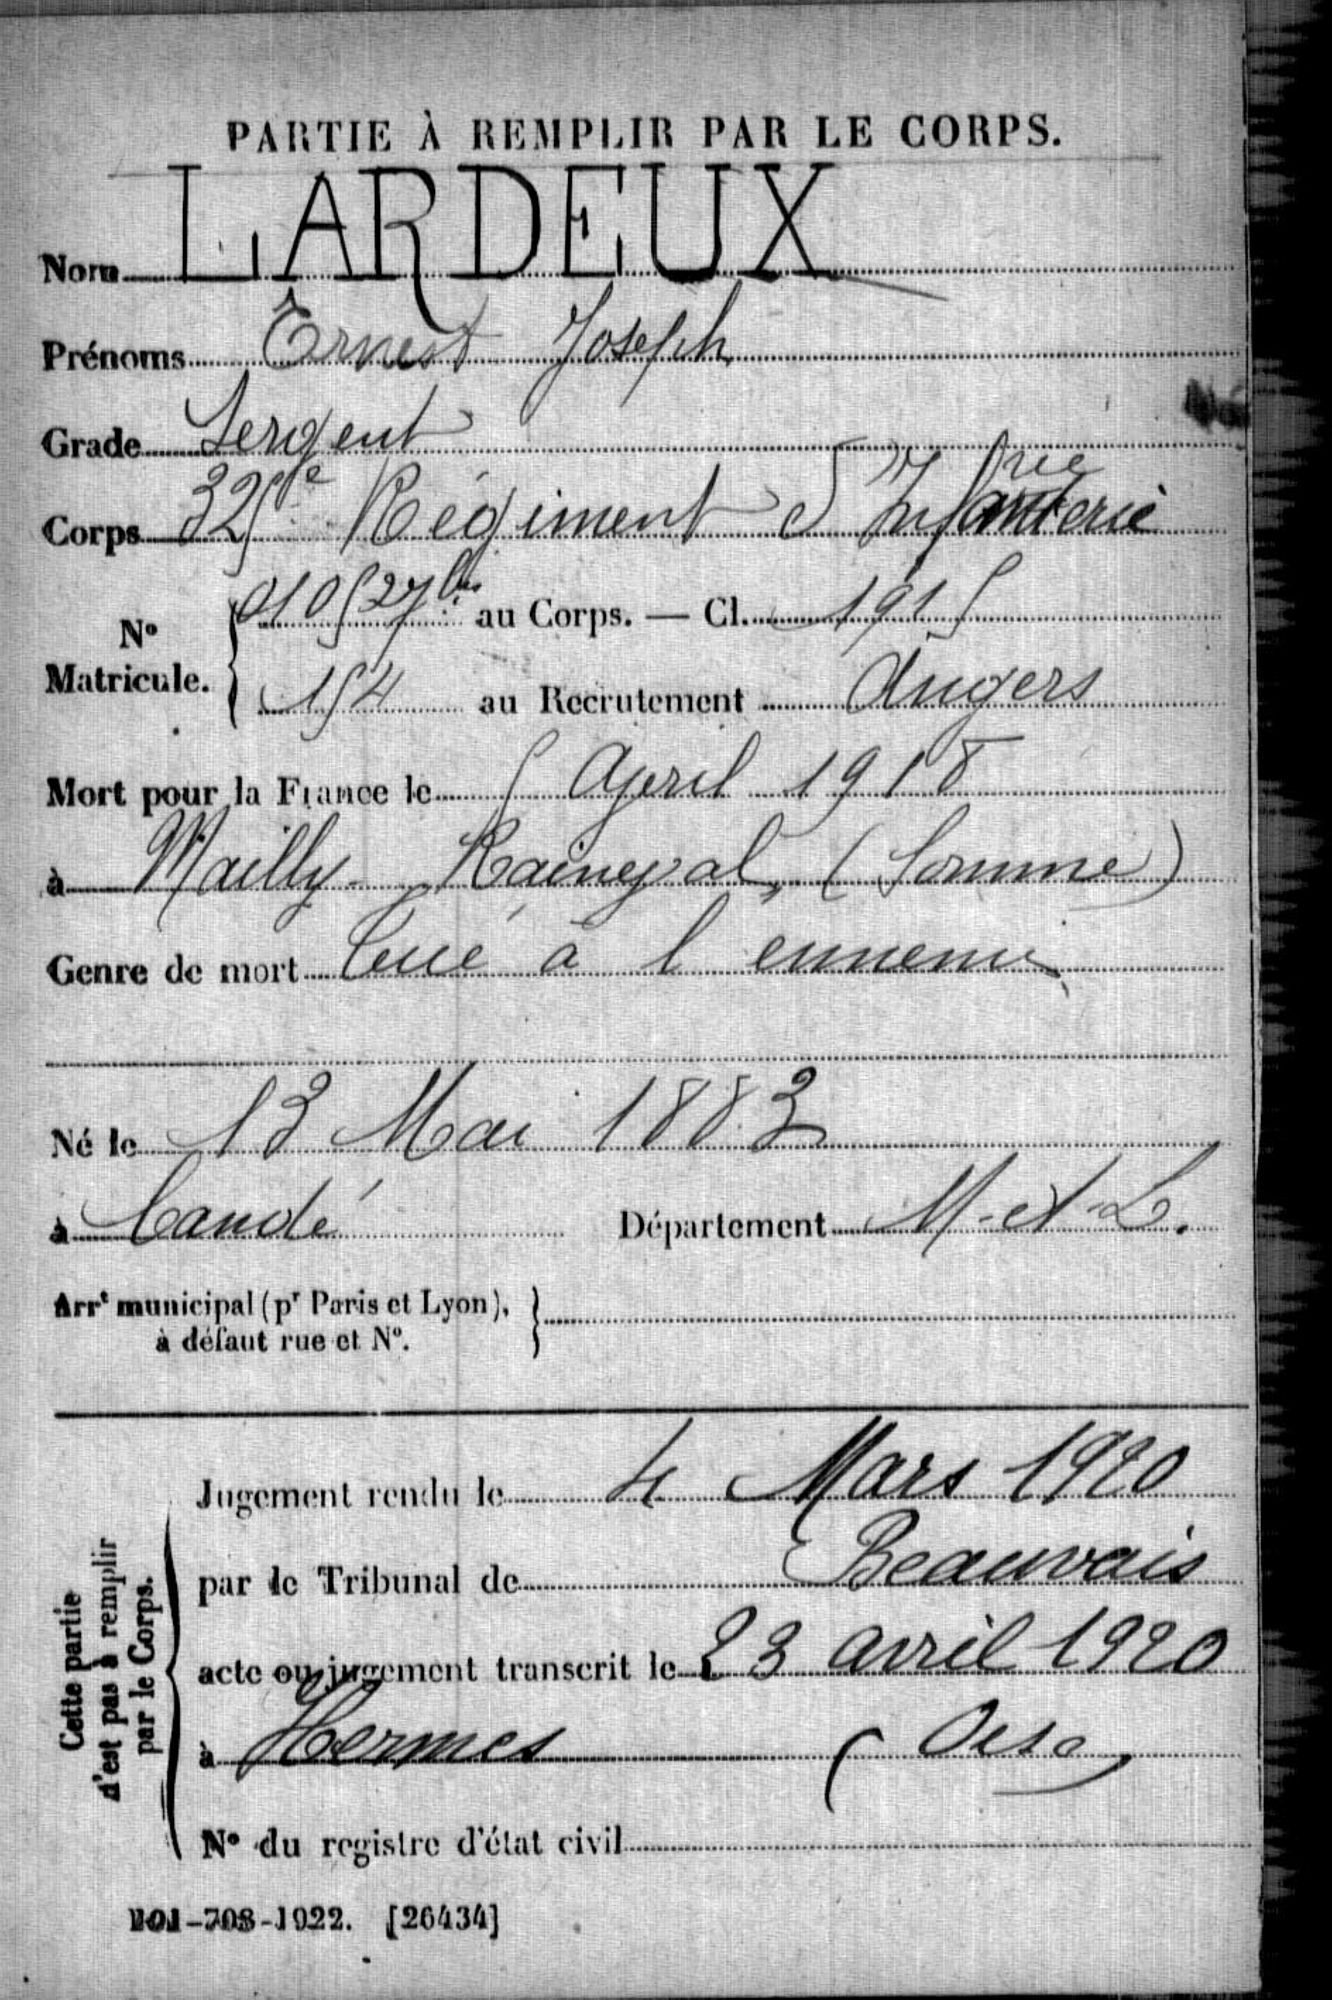 PARTIE À REMPLIR PAR LE CORPS.
Nom LARDEUX
Prénoms Ernest Joseph
Grade Sergent
Corps 325e Régiment d'Infanterie
N° Matricule. 010527bis au Corps. — Cl. 1915
154 au Recrutement Angers
Mort pour la France le 5 April 1918
à Mailly-Raineval, (Somme)
Genre de mort Tué à l'ennemi
Né le 13 Mai 1883
à Candé Département M-et-L.
Arrt municipal (pr Paris et Lyon),
à défaut rue et N°.
Cette partie
n'est pas à remplir
par le Corps.
Jugement rendu le 4 Mars 1920
par le Tribunal de Beauvais
acte ou jugement transcrit le 23 avril 1920
à Hermes (Oise)
N° du registre d'état civil
-708-1922. [26434]